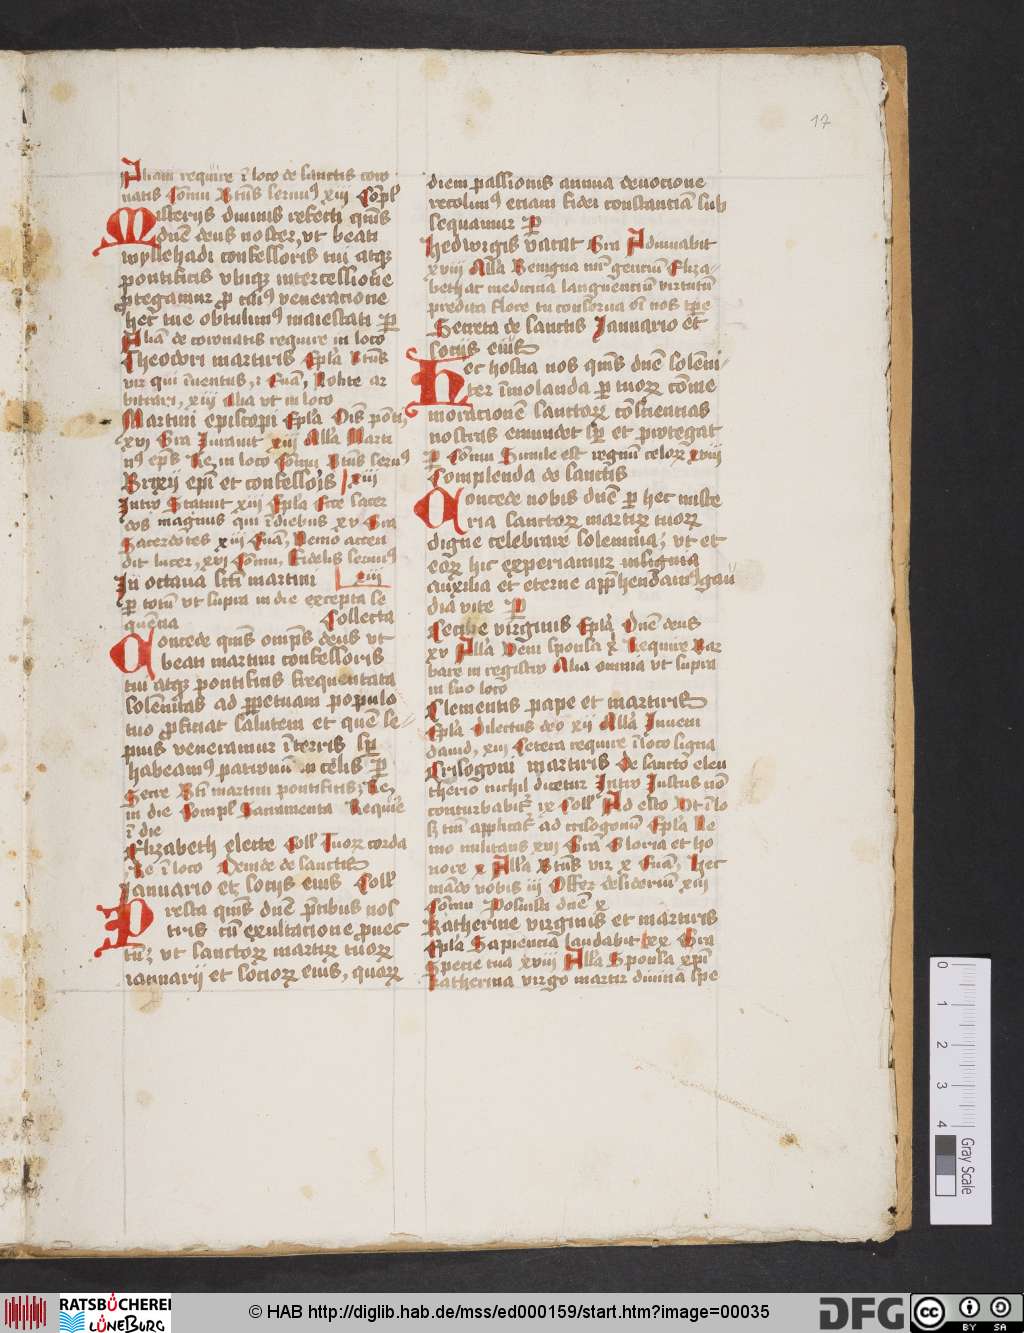 17
Aliam require ī loco de sanctis coro
natis Cōmu Btūs seruus xiii Cōpl
Misterijs diuinis refecti qum̄s
dn̄e deus noster, vt beati
wyllehadi confessoris tui atqꝫ
pontificis vbiqꝫ intercessione
protegamur pro cuius veneracione
hec tue obtulimꝰ maiestati p
Aliā de coronatis require in loco
Theodori martiris Epl'a Btūs
vir qui īuentus, i Euā, Nolite ar
bitrari, xiii Alia vt in loco
Martini episcopi Epl'a Dis ponti,
xvi Gra Iurauit xiii All'a Marti
nꝰ ep̄s Re, in loco Cōmu Btūs seruꝰ
Brixij epī et confessoris xiii
Intro Statuit xiii Epl'a Ecce sacer
dos magnus qui ī diebus xv Gra
Sacerdotes xiii Euā, Nemo accen
dit lucer, xvi Cōmu, Fidelis seruꝰ
In octaua sc̄ti martini xiii
p totū vt supra in die excepta se
quēcia Collecta
Concede qum̄s omp̄s deus vt
beati martini confessoris
tui atqꝫ pontificis frequentata
solēnitas ad ꝑpetuam populo
tuo proficiat salutem et quē se
pius veneramur ī terris sp
habeamꝰ patronū in celis p
Secre Bti martini pontificis; Re,
in die Compl Sacramenta Require
ī die
Elizabeth electe Coll' Tuoꝝ corda
Re ī loco Deinde de sanctis
Ianuario et socijs eius Coll'
Presta qum̄s dn̄e p̄cibus nos
tris cū exultacione prouec
tū; vt sanctoꝝ martiꝝ tuoꝝ
ianuarij et socioꝝ eius, quoꝝ
diem passionis annua deuocione
recolimꝰ etiam fidei constanciā sub
sequamur p
Hedwigis vacat Gra Adiuuabit
xviii All'a Benigna tui gencium Eliza-
beth ac medicina languenciū virtutū
predita flore tu conserua
Secreta de sanctis Ianuario et
socijs eius
Hec hostia nos qum̄s dn̄e solēni
ter īmolanda p tuoꝝ cōme
moracionē sanctoꝝ cōsciencias
nostras emundet sp et protegat
p Cōmu Simile est regnū celoꝝ xviii
Complenda de sanctis
Concede nobis dn̄e p hec miste
ria sanctoꝝ martiꝝ tuoꝝ
digne celebrare solemnia; vt et
eoꝝ hic experiamur insignia
auxilia et eterne app̄hendamꝰ gau
dia vite p
Cecilie virginis Epl'a Dn̄e deus
xv All'a Veni sponsa x Require Bar
bare in registro Alia omnia vt supra
in suo loco
Clementis pape et martiris
Epl'a Dilectus deo xii All'a Inueni
dauid, xiii Cetera require ī loco signa
Crisogoni martiris De sancto eleu
therio nichil dicetur Intro Iustus nō
conturbabitꝝ ix Coll' Ad esto Vt ī lo
applicatꝝ ad crisogonum Epl'a Ne
mo militans xvi Grā Gloria et ho
nore x All'a Btūs vir x Euā, Hec
mādo vobis iii Offer desiderium xiii
Cōmu Posuisti dn̄e x
Katherine virginis et martiris
Epl'a Sapienciā laudabit xx Gra
Specie tua xviii All'a Sponsa xp̄i
katherina virgo martir diuina spe
0 1 2 3 4 Gray Scale
RATSBÜCHEREI
LÜNEBURG
© HAB http://diglib.hab.de/mss/ed000159/start.htm?image=00035
DFG
cc BY SA